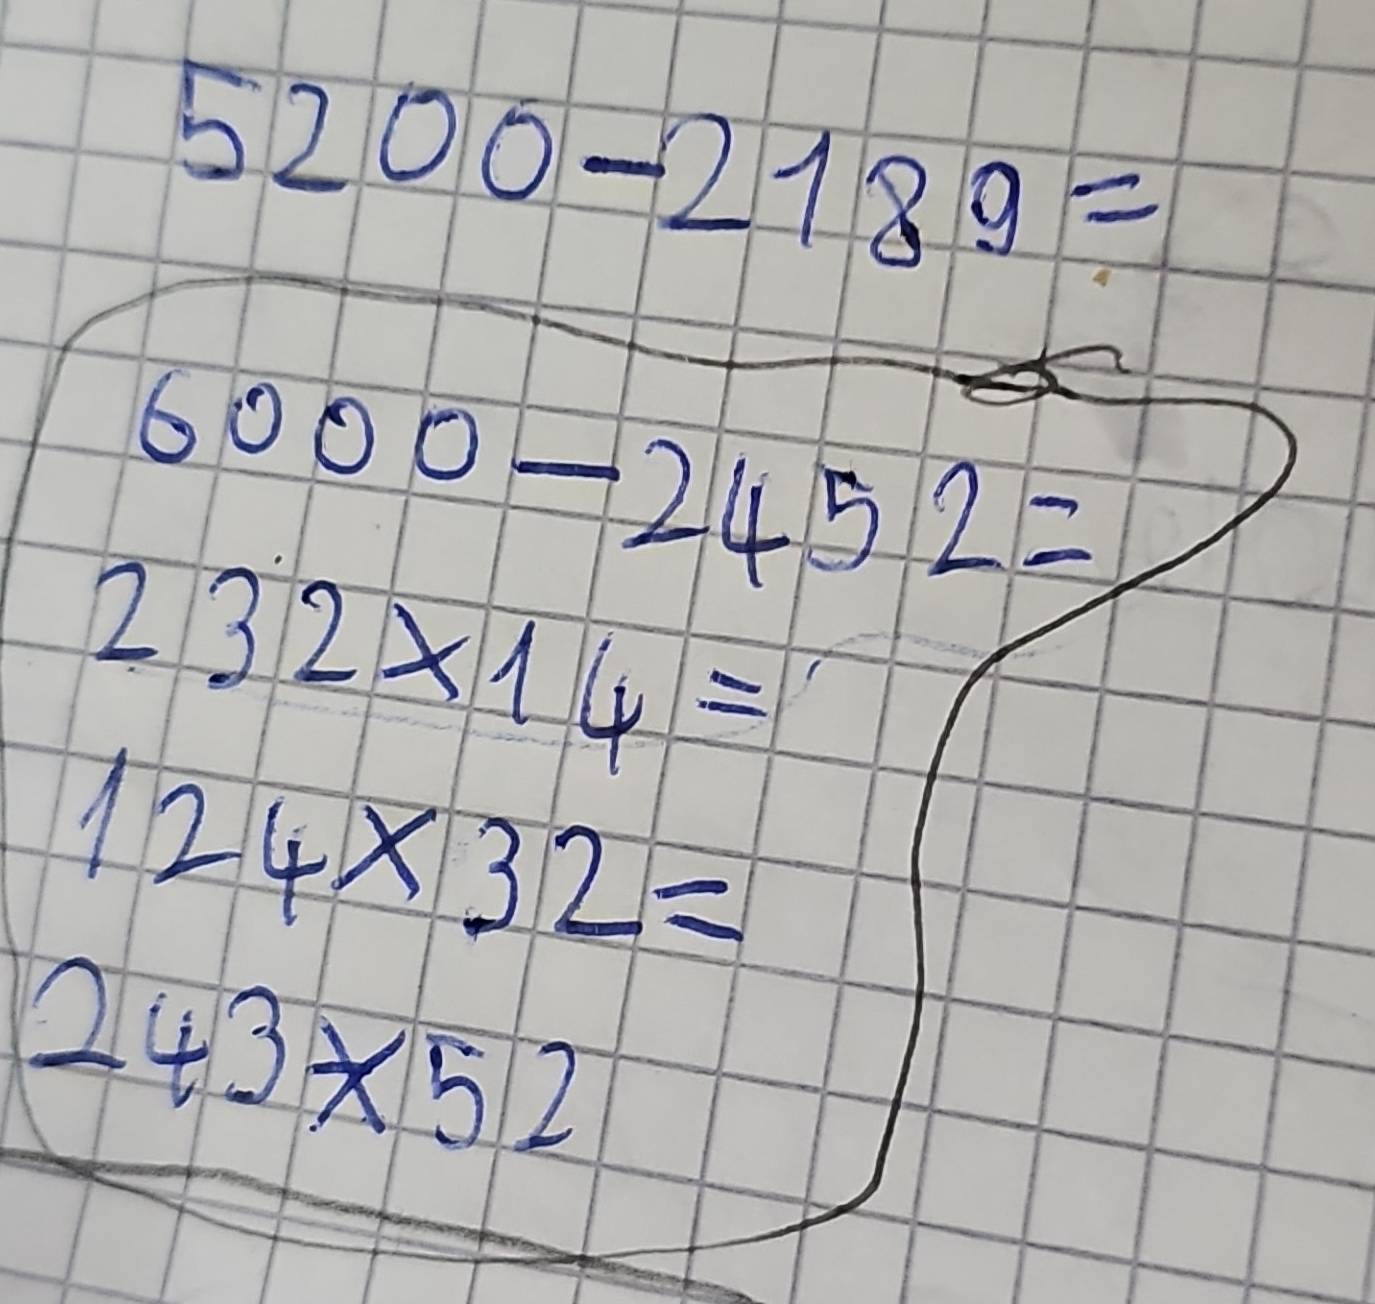 5200-2189=
6000-2452=
232×14=
124×32=
243×52